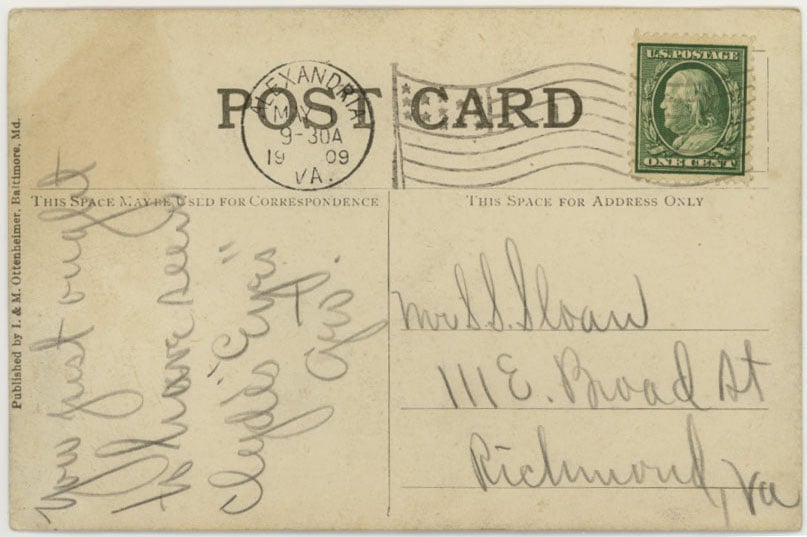 POST CARD
ALEXANDRIA
MAY
9-30A
19 09
VA.
U.S. POSTAGE
ONE CENT
THIS SPACE MAY BE USED FOR CORRESPONDENCE
THIS SPACE FOR ADDRESS ONLY
Published by I. & M. Ottenheimer, Baltimore, Md.
You just ought
to have seen
Clyde's "Eyes"
Mr S.S. Sloan
111 E. Broad St
Richmond, Va